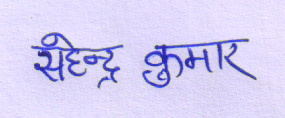 सहेन्द्र कुमार